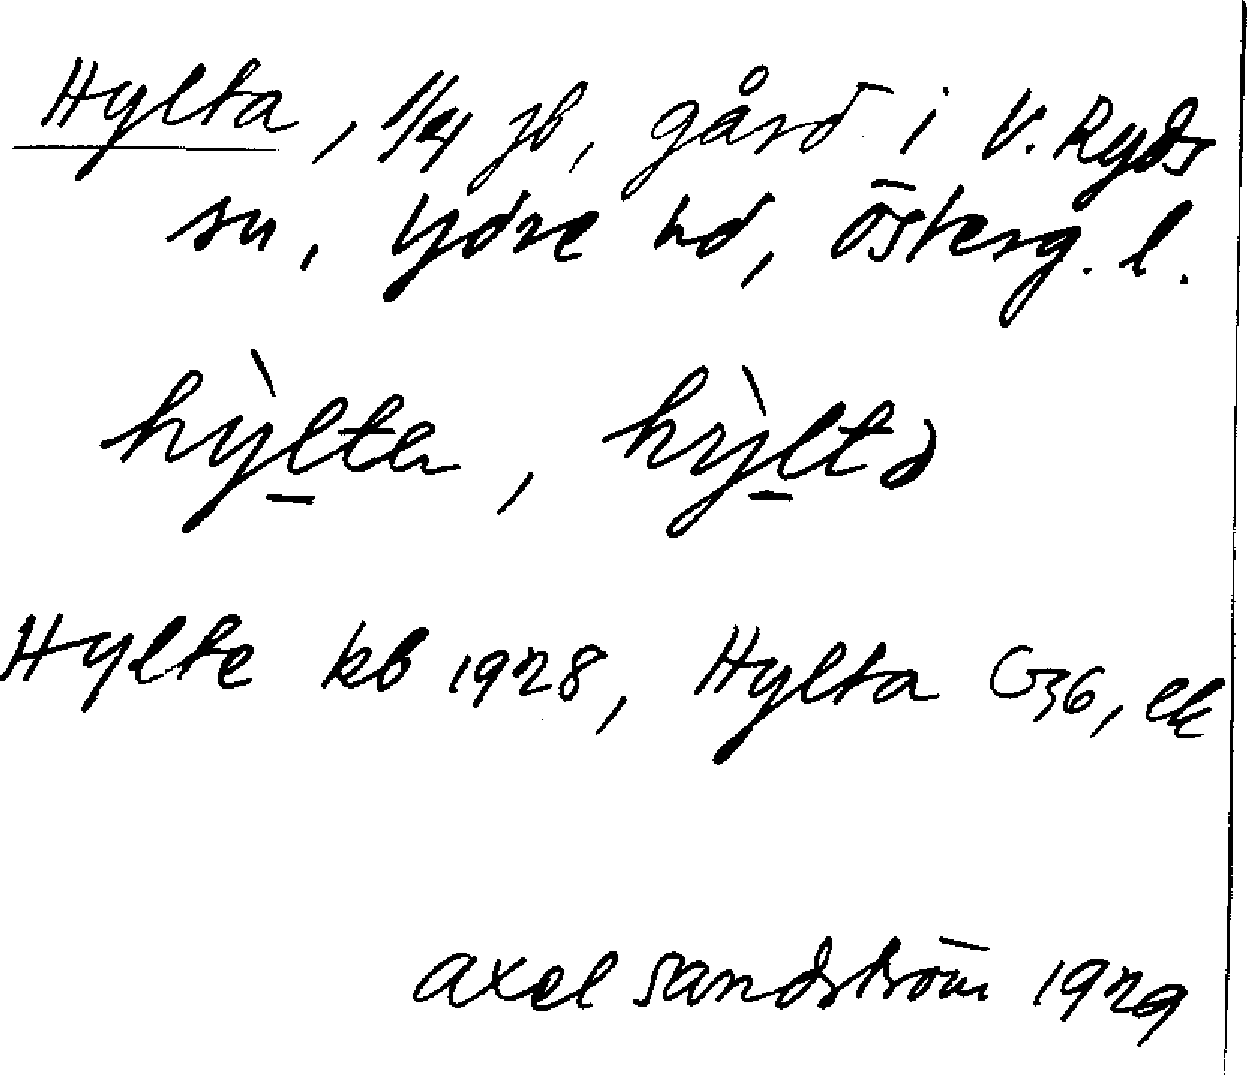 Hylta, 1/4 jb, gård i V. Ryds
sn, Ydre hd, Österg. l.
hỳltɐ, hỳltə
Hylte kb 1928, Hylta G36, ek
Axel Sandström 1929